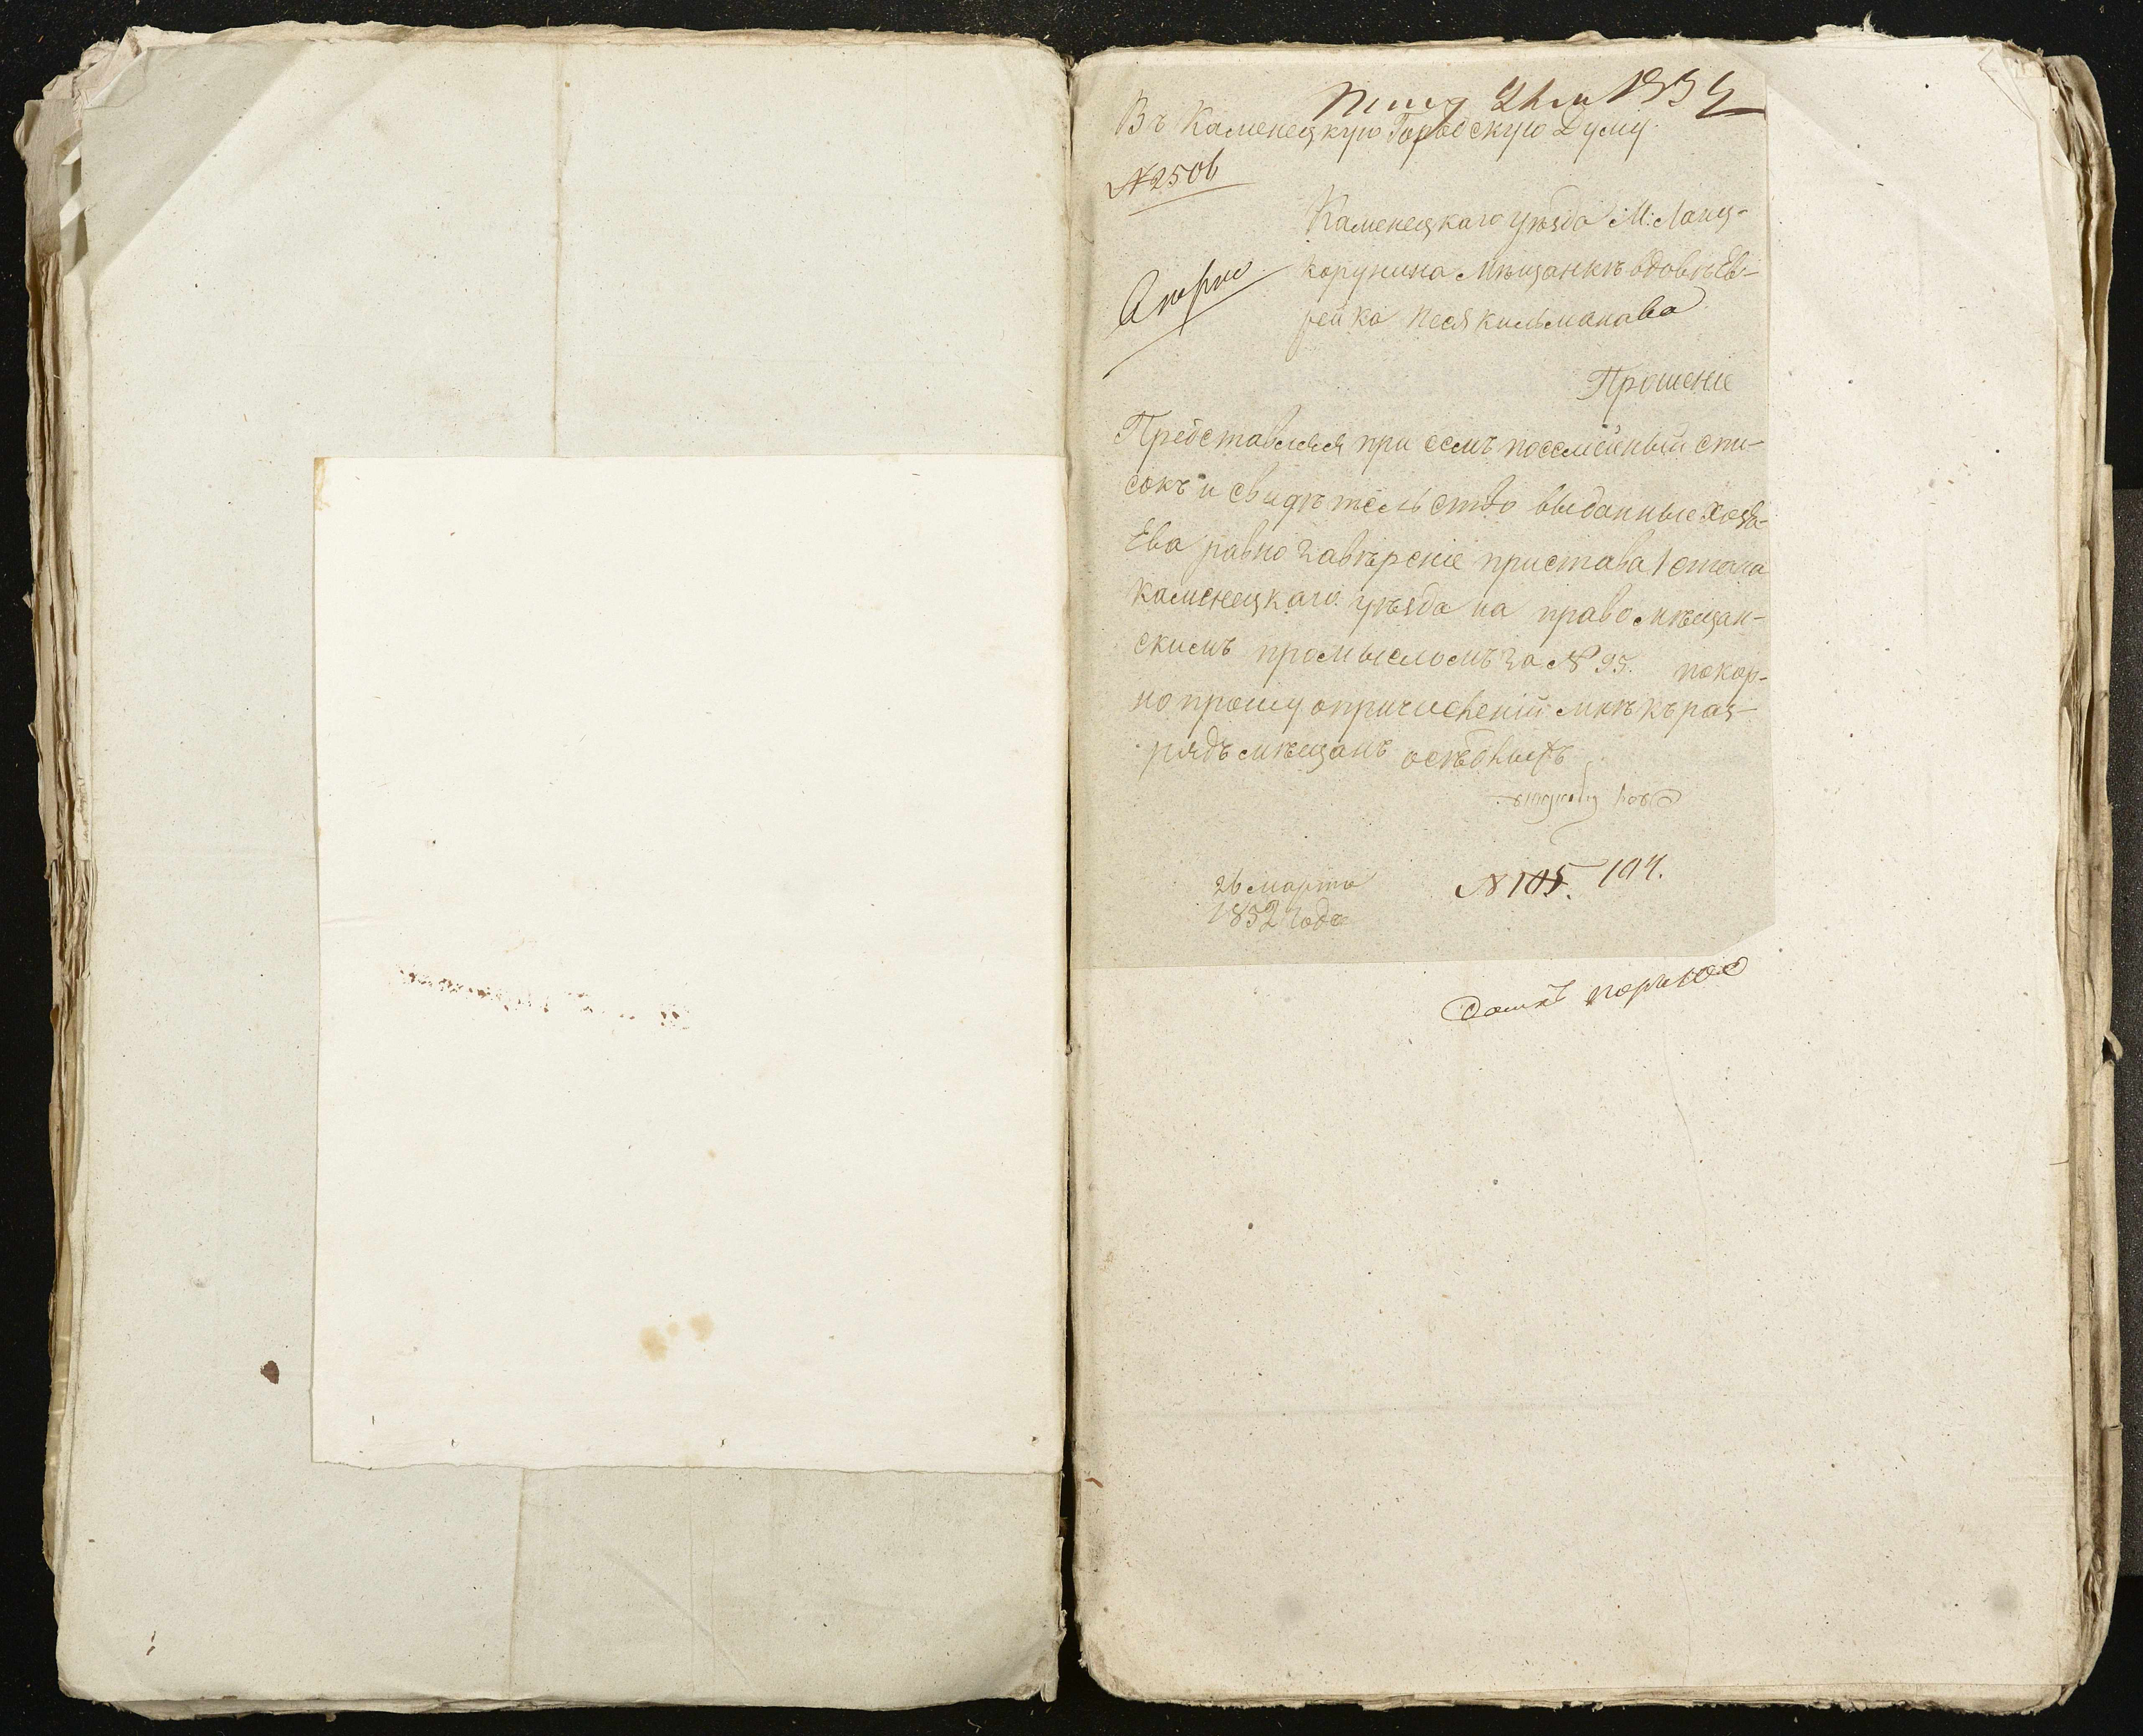 1852
Въ Каменецкую Городскую Думу
№ 2506
Каменецкаго уѣзда М: Ланц-
корунина Мѣщанкѣ вдовѣ Ев-
рейка Песя Кильманава
Прошеніе
Представляя при семъ посемейный спи-
сокъ и свидѣтельство выданные хозя-
Ева равно завѣреніе пристава 1 стана
каменецкаго уѣзда на право мѣщан-
скимъ промысломъ за № 95. покор-
но прошу о причисленій мнѣ къ раз-
рядъ мѣщанъ осѣдныхъ
26 марта
1852 года
№ 105. 104.